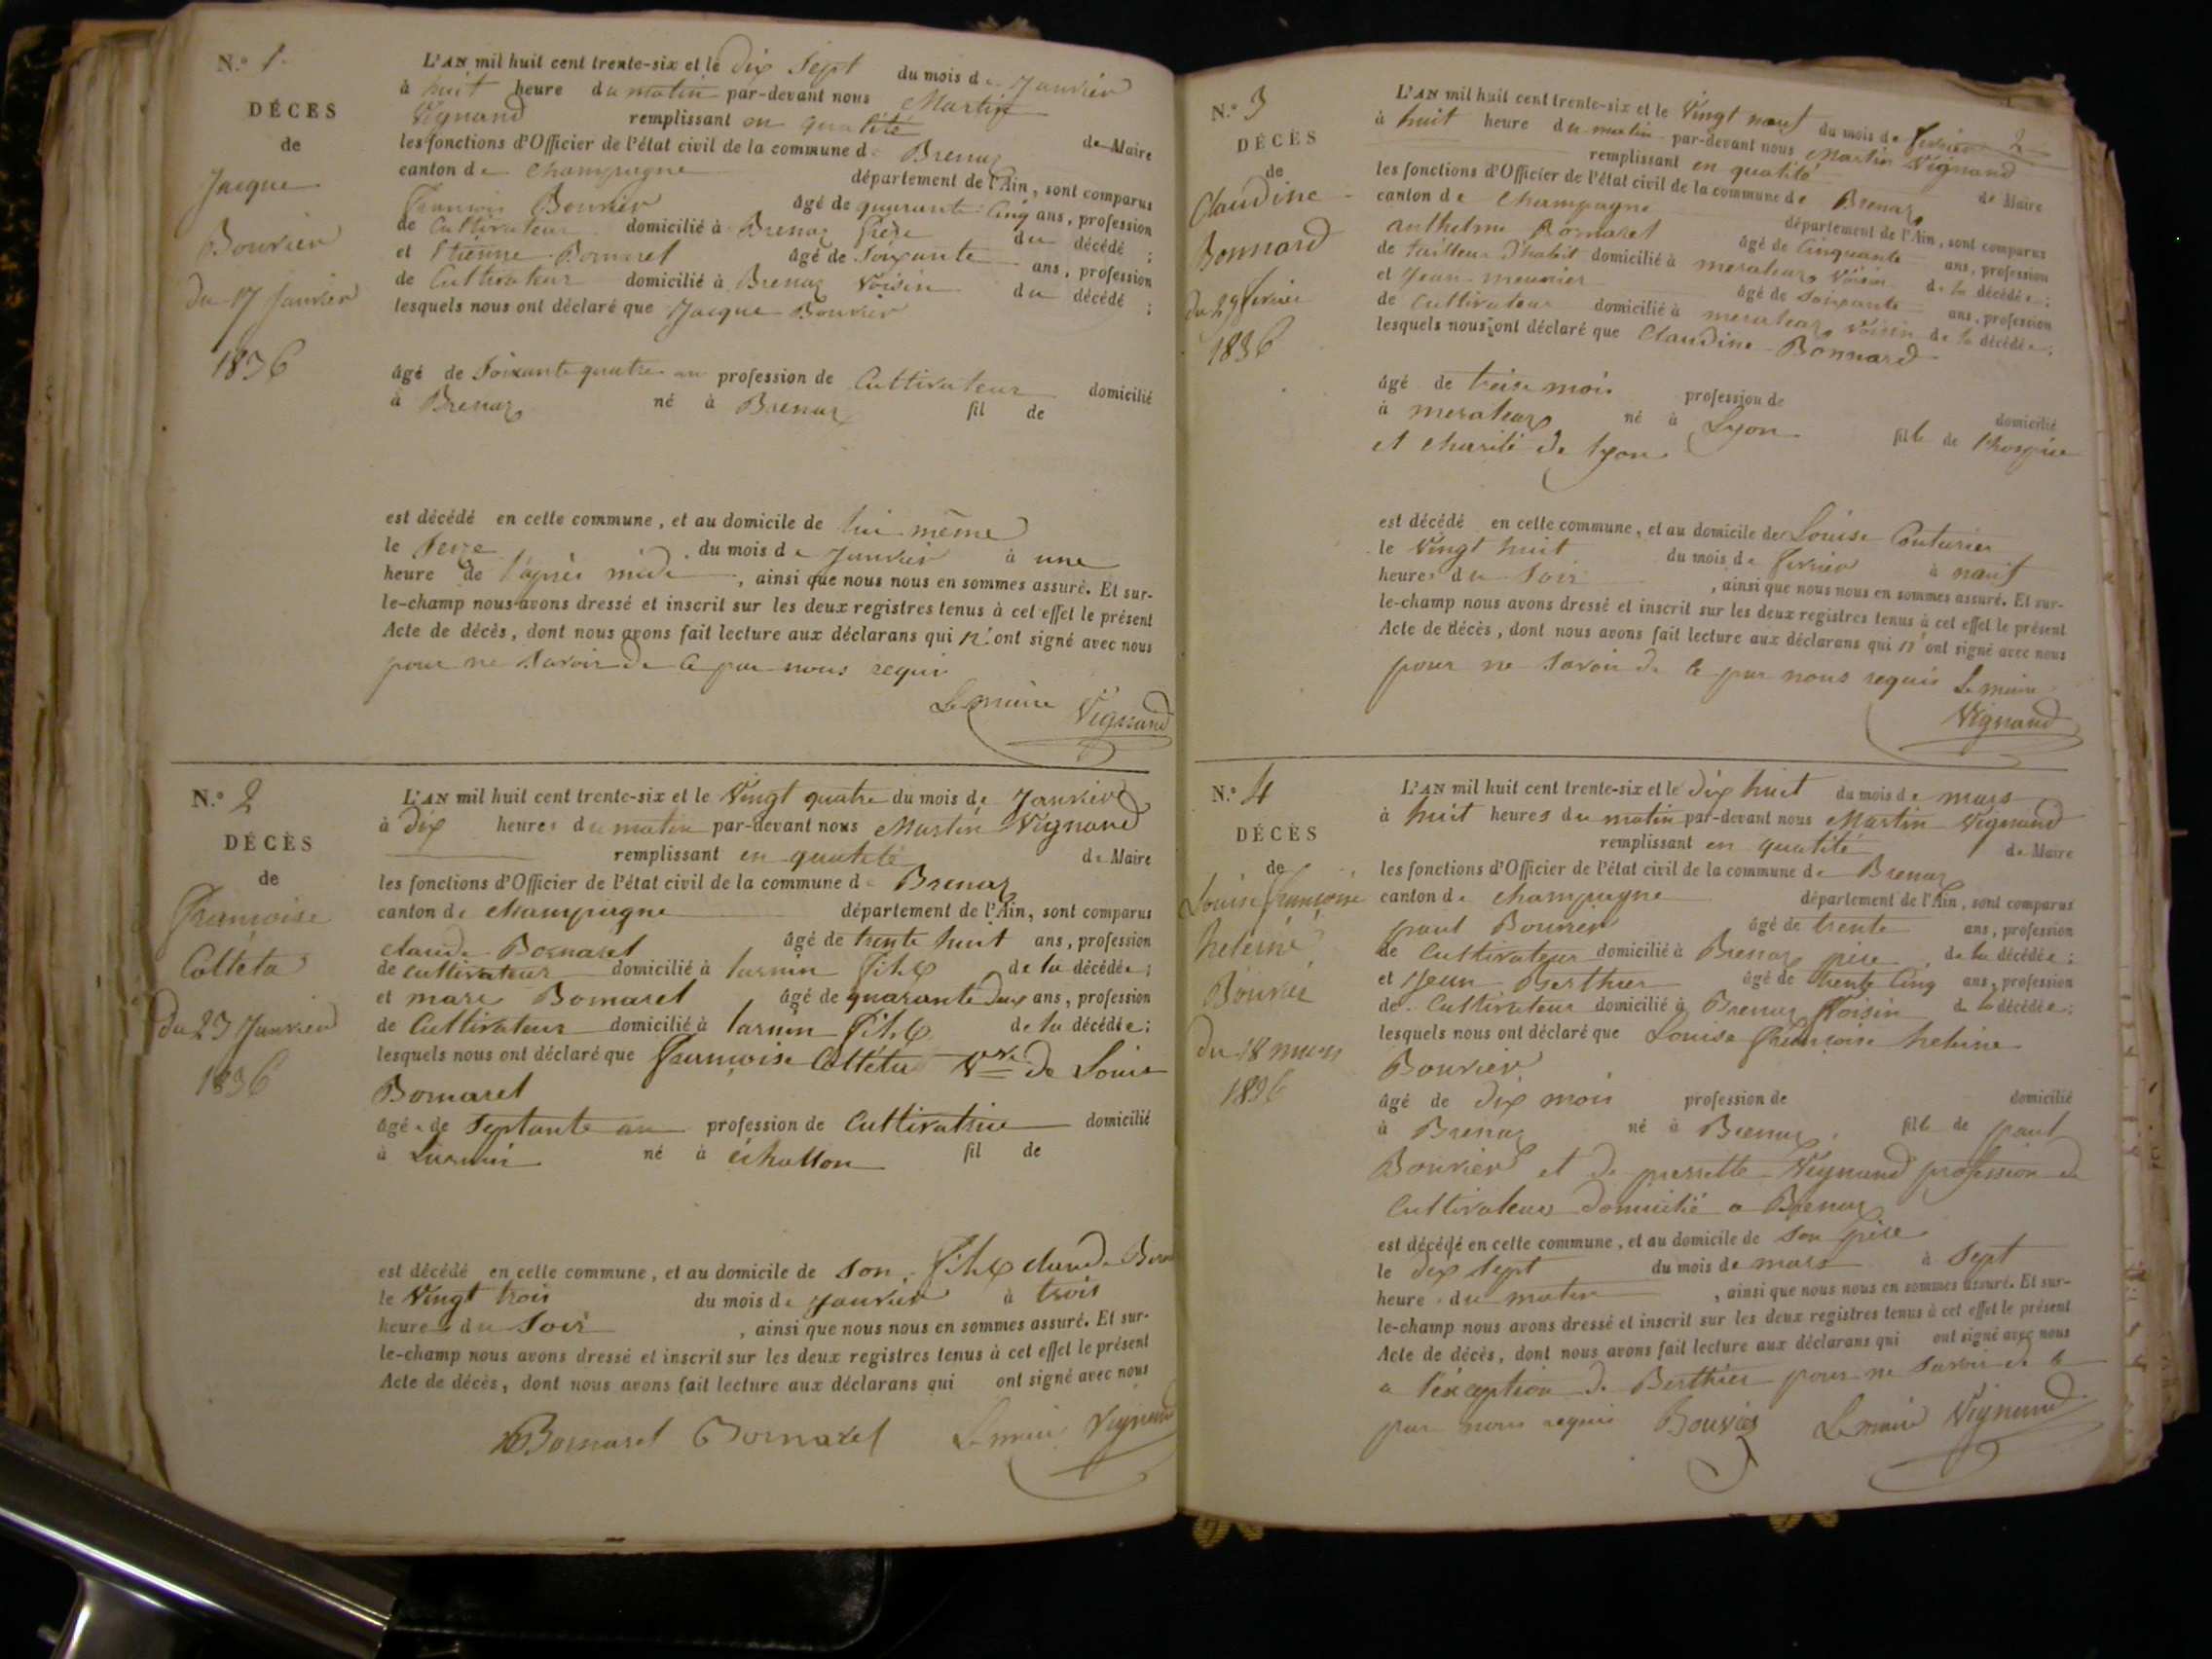 N.° 1.
DÉCES
de
Jacque
Bouvier
du 17 Janvier
1836
L'AN mil huit cent trente-six et le dix Sept du mois de Janvier
à huit heure du matin par-devant nous Martin
Vignand remplissant en qualité de Maire
les fonctions d'Officier de l'état civil de la commune de Brenaz
canton de Champagne département de l'Ain, sont comparus
françois Bouvier âgé de quarante Cinq ans, profession
de Cultivateur domicilié à Brenaz frère du décédé ;
et Etienne Bornarel âgé de Soixante ans, profession
de Cultivateur domicilié à Brenaz Voisin du décédé ;
lesquels nous ont déclaré que Jacque Bouvier
âgé de Soixante quatre an profession de Cultivateur domicilié
à Brenaz né à Brenaz fil de
est décédé en cette commune, et au domicile de lui même
le Seize du mois de Janvier à une
heure de l'après midi, ainsi que nous nous en sommes assuré. Et sur-
le-champ nous avons dressé et inscrit sur les deux registres tenus à cet effet le présent
Acte de décès, dont nous avons fait lecture aux déclarans qui n'ont signé avec nous
pour ne Savoir de Ce par nous requis
Le maire Vignand
N.° 2
DÉCÈS
de
françoise
Colléta
du 23 Janvier
1836
L'AN mil huit cent trente-six et le Vingt quatre du mois de Janvier
à Dix heures du matin par-devant nous Martin Vignand
remplissant en qualité de Maire
les fonctions d'Officier de l'état civil de la commune de Brenaz
canton de Champagne département de l'Ain, sont comparus
claude Bornarel âgé de trente huit ans, profession
de cultivateur domicilié à de la décédée ;
et marc Bornarel âgé de quarante deux ans, profession
de Cultivateur domicilié à de la décédée ;
lesquels nous ont déclaré que françoise Colléta Vve de Louis
Bornarel
âgée de Septante an profession de Cultivatrice domicilié
à né à échallon fil de
est décédé en cette commune, et au domicile de Son claude
le Vingt trois du mois de Janvier à trois
heures du Soir, ainsi que nous nous en sommes assuré. Et sur-
le-champ nous avons dressé et inscrit sur les deux registres tenus à cet effet le présent
Acte de décès, dont nous avons fait lecture aux déclarans qui ont signé avec nous
Bornarel Bornarel Le maire Vignand
2
N.° 3
DÉCÈS
de
Claudine
Bonnard
du 29 fevrier
1836
L'AN mil huit cent trente-six et le Vingt neuf du mois de fevrier
à huit heure du matin par-devant nous Martin Vignand
remplissant en qualité de Maire
les fonctions d'Officier de l'état civil de la commune de Brenaz
canton de Champagne département de l'Ain, sont comparus
anthelme Bornarel âgé de Cinquante ans, profession
de tailleur d'habit domicilié à meraleaz Voisin de la décédée ;
et Jean meunier âgé de Soixante ans, profession
de Cultivateur domicilié à meraleaz Voisin de la décédée ;
lesquels nous ont déclaré que Claudine Bonnard
âgé de treise mois profession de domicilié
à meraleaz né à Lyon fille de l'hospice
et charité de lyon
est décédé en cette commune, et au domicile de Louise Couturier
le Vingt huit du mois de fevrier à neuf
heures du Soir, ainsi que nous nous en sommes assuré. Et sur-
le-champ nous avons dressé et inscrit sur les deux registres tenus à cet effet le présent
Acte de décès, dont nous avons fait lecture aux déclarans qui n'ont signé avec nous
pour ne Savoir de Ce par nous requis Le maire
Vignand
N.° 4
DÉCÈS
de
Louise françoise
heleine
Bouvier
du 18 mars
1836
L'AN mil huit cent trente-six et le dix huit du mois de mars
à huit heures du matin par-devant nous Martin Vignand
remplissant en qualité de Maire
les fonctions d'Officier de l'état civil de la commune de Brenaz
canton de champagne département de l'Ain, sont comparus
paul Bouvier âgé de trente ans, profession
de Cultivateur domicilié à Brenaz père de la décédée ;
et Jean Berthier âgé de trente Cinq ans, profession
de Cultivateur domicilié à Brenaz Voisin de la décédée ;
lesquels nous ont déclaré que Louise françoise heleine
Bouvier
âgé de dix mois profession de domicilié
à Brenaz né à Brenaz fille de paul
Bouvier et de pierrette Vignand profession de
Cultivateur domicilié a Brenaz
est décédé en cette commune, et au domicile de Son père
le dix Sept du mois de mars à Sept
heure du matin, ainsi que nous nous en sommes assuré. Et sur-
le-champ nous avons dressé et inscrit sur les deux registres tenus à cet effet le présent
Acte de décès, dont nous avons fait lecture aux déclarans qui ont signé avec nous
a l'exception de Berthier pour ne Savoir de Ce
par nous requis Bouvier Le maire Vignand